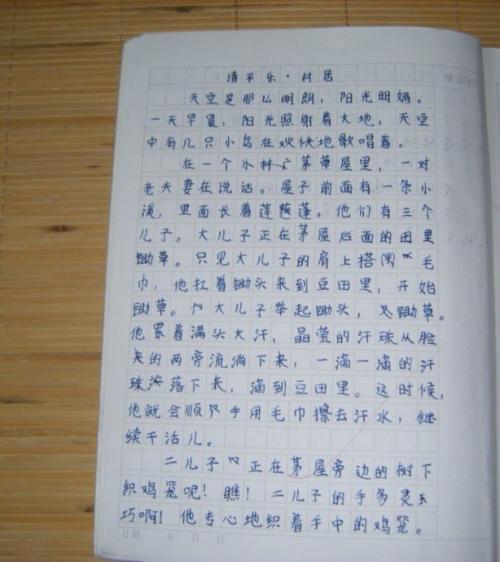 清平乐·村居
天空是那么明朗，阳光明媚。
一天早晨，阳光照射着大地，天空
中有几只小鸟在欢快地歌唱着。
在一个水村茅草屋里，一对
老夫妻在说话。屋子前面有一条小
溪，里面长着莲蓬。他们有三个
儿子。大儿子正在茅屋后面的田里
锄草。只见大儿子的肩上搭闲毛
巾，他扛着锄头来到豆田里，开始
锄草。大儿子举起锄头，锄草。
他累着满头大汗，晶莹的汗珠从脸
的两旁流淌下来，一滴一滴的汗
珠滚落下来，滴到豆田里。这时候，
他就会顺手用毛巾擦去汗水，继
续干活儿。
二儿子正在茅屋旁边的树下
织鸡笼呢！瞧！二儿子的手多灵
巧啊！他专心地织着手中的鸡笼。
日期： 年 月 日